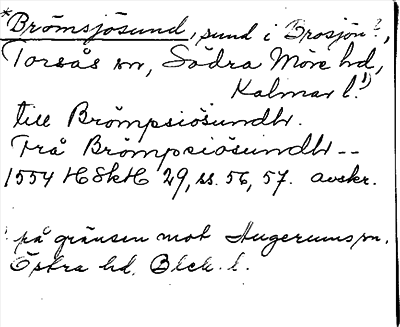 *Brömsjösund, sund i Brosjön?,
Torsås sn, Södra Möre hd,
Kalmar l.1)
till Brömpsiösundh.
Frå Brömpsiösundh --
1554 HSkH 29, ss. 56, 57. avskr.
1 på gränsen mot Hugerums sn.
Östra hd. Blek. l.